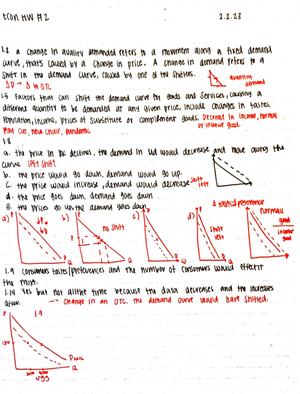 econ HW #2
2.2.23
1.2 a change in quality demanded refers to a movement along a fixed demand
curve, that's caused by a change in price. A change in demand refers to a
shift in the demand curve, caused by one of the shifters.
quantity
demand
1.5 Factors that can shift the demand curve for goods and services, causing a
different quantity to be demanded at any given price, include changes in tastes,
population, income, prices of substitute or complement goods. Decrease in income, normal
or inferior good.
1.8
a. the price in BC declines, the demand in Ld would decrease and move along the
curve. left shift
b. the price would go down, demand would go up.
c. the price would increase, demand would decrease shift
left
d. the price goes down, demand goes down
e. the prices go up, the demand goes down
a)
b)
no shift
c)
d)
shift
left
normal
good
inferior
good
P
Q
1.9 consumers tastes/preferences and the number of consumers would effect it
the most.
1.14 Yes but not all the time because the data decreases and the increases
after. → change in an OTC. the demand curve would have shifted.
P
1.9
Q